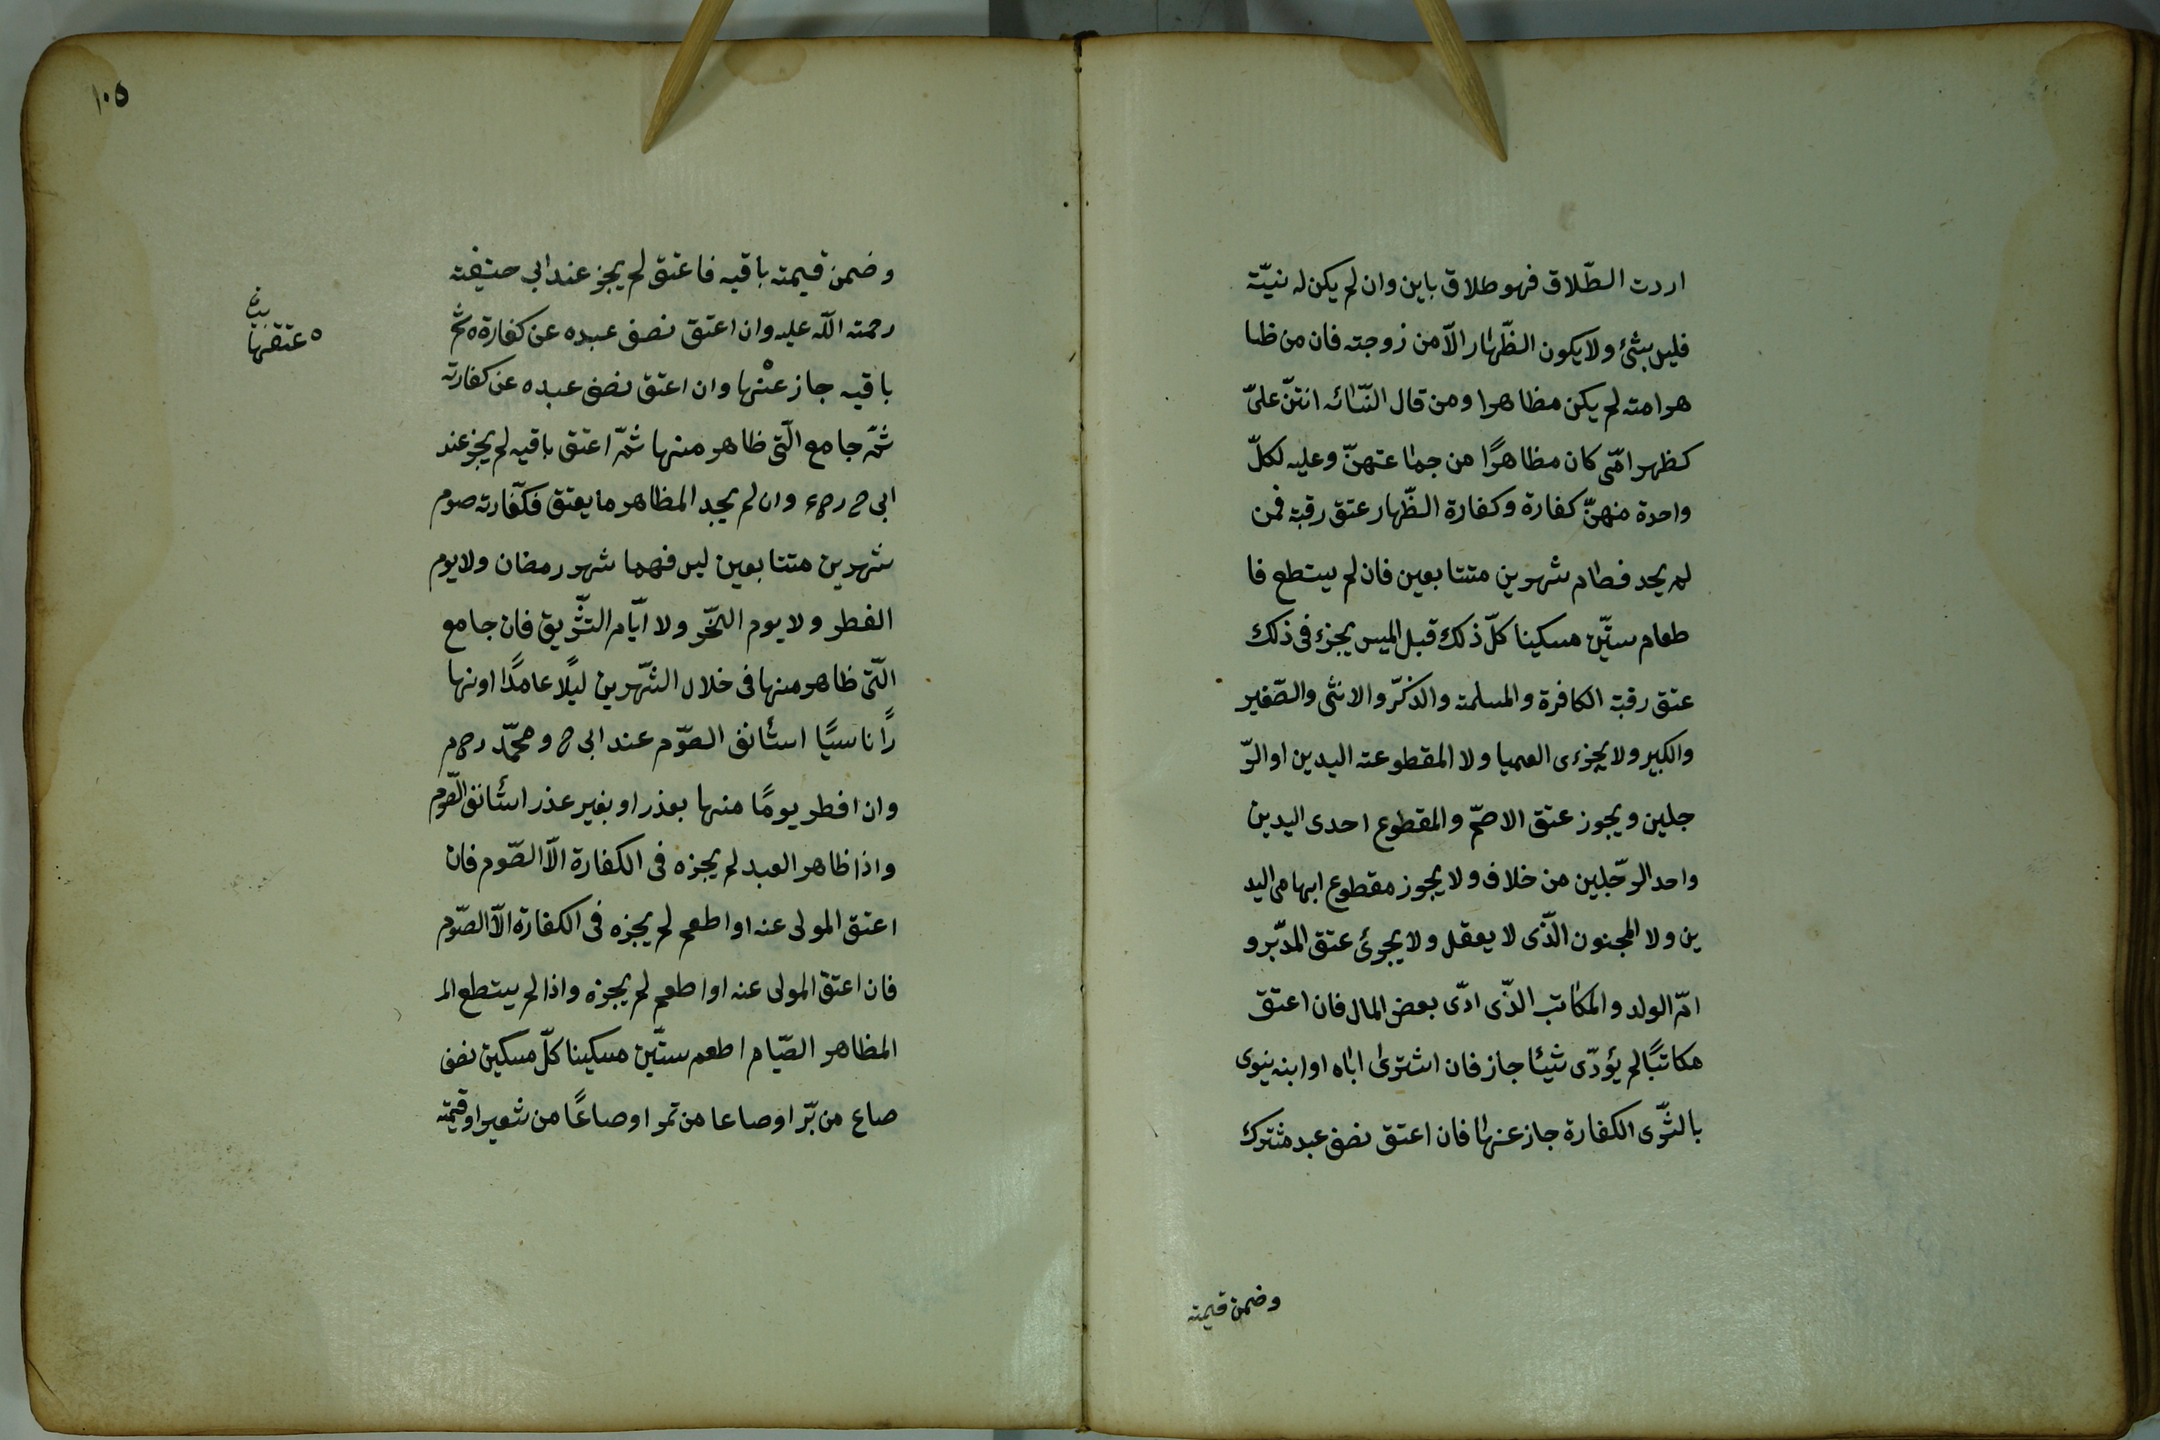 اردت الطّلاق فهو طلاق باين وان لم يكن له نيّة
فليس بشئ ولا يكون الظّهار الّا من زوجته فان من ظا
هر امته لم يكن مظاهرا ومن قال لنسائه انتنّ علىّ
كظهر امّى كان مظاهرًا من جماعتهنّ وعليه لكلّ
واحدة منهنّ كفارة وكفارة الظّهار عتق رقبة فمن
لم يجد فصام شهرين متتابعين فان لم يستطع فا
طعام ستّين مسكينا كلّ ذلك قبل الميس يجزء فى ذلك
عتق رقبة الكافرة والمسلمة والذكّر والانثى والصّغير
والكبير ولا يجزءى العميا ولا المقطوعة اليدين او الرّ
جلين ويجوز عتق الاصمّ والمقطوع احدى اليدين
واحد الرّجلين من خلاف ولا يجوز مقطوع ابهامى اليد
ين ولا المجنون الّذى لا يعقل ولا يجوئ عتق المدّبر و
امّ الولد والمكاتب الّذى ادّى بعض المال فان اعتق
مكاتبًا لم يؤدّى شيئا جاز فان اشترى اباه او ابنه ينوى
بالشّرى الكفارة جاز عنها فان اعتق نصف عبد مشترك
وضمن قيمته
١٠٥
وضمن قيمته باقيه فاعتق لم يجز عند ابى حنيفة
رحمة اللّه عليه وان اعتق نصف عبده عن كفارة ثمّ
باقيه جاز عنها وان اعتق نصف عبده عن كفارته
ثمّ جامع الّتى ظاهر منها ثمّ اعتق باقيه لم يجز عند
ابى ح رح وان لم يجد المظاهر ما يعتق فكفّارته صوم
شهرين متتابعين ليس فهما شهر رمضان ولا يوم
الفطر ولا يوم النّحر ولا ايّام التّشريق فان جامع
الّتى ظاهر منها فى خلال الشّهرين ليلًا عامدًا او نها
رًا ناسيًا استأنف الصّوم عند ابى ح ومحمّد رحم
وان افطر يومًا منها بعذر او بغير عذر استأنف الصّوم
واذا ظاهر العبد لم يجزه فى الكفارة الّا الصّوم فان
اعتق المولى عنه او اطعم لم يجزه فى الكفارة الّا الصّوم
فان اعتق المولى عنه او اطعم لم يجزه واذا لم يستطع الم
المظاهر الصّيام اطعم ستّين مسكينا كلّ مسكين نصف
صاع من بّر او صاعا من تمر او صاعًا من شعير او قيمته
عتقها